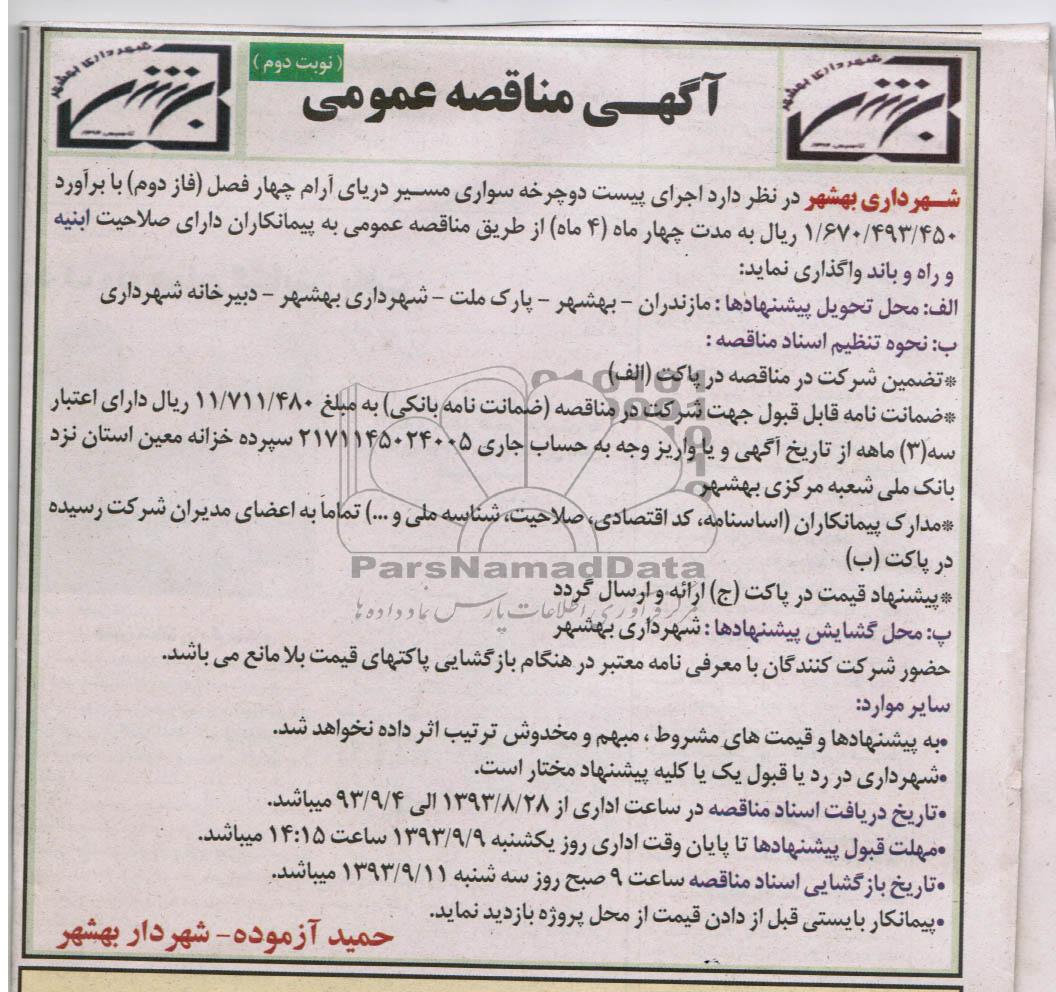 شهرداری بهشهر
( نوبت دوم )
آگهی مناقصه عمومی
شهرداری بهشهر
شهرداری بهشهر در نظر دارد اجرای پیست دوچرخه سواری مسیر دریای آرام چهار فصل (فاز دوم) با برآورد
۱/۶۷۰/۴۹۳/۴۵۰ ریال به مدت چهار ماه (۴ ماه) از طریق مناقصه عمومی به پیمانکاران دارای صلاحیت ابنیه
و راه و باند واگذاری نماید:
الف: محل تحویل پیشنهادها : مازندران - بهشهر - پارک ملت - شهرداری بهشهر - دبیرخانه شهرداری
ب: نحوه تنظیم اسناد مناقصه :
*تضمین شرکت در مناقصه در پاکت (الف)
*ضمانت نامه قابل قبول جهت شرکت در مناقصه (ضمانت نامه بانکی) به مبلغ ۱۱/۷۱۱/۴۸۰ ریال دارای اعتبار
سه(۳) ماهه از تاریخ آگهی و یا واریز وجه به حساب جاری ۲۱۷۱۱۴۵۰۲۴۰۰۵ سپرده خزانه معین استان نزد
بانک ملی شعبه مرکزی بهشهر
*مدارک پیمانکاران (اساسنامه، کد اقتصادی، صلاحیت، شناسه ملی و ...) تماماً به اعضای مدیران شرکت رسیده
در پاکت (ب)
ParsNamadData
*پیشنهاد قیمت در پاکت (ج) ارائه و ارسال گردد
مرکز فرآوری اطلاعات پارس نماد داده ها
پ: محل گشایش پیشنهادها : شهرداری بهشهر
حضور شرکت کنندگان با معرفی نامه معتبر در هنگام بازگشایی پاکتهای قیمت بلامانع می باشد.
سایر موارد:
•به پیشنهادها و قیمت های مشروط ، مبهم و مخدوش ترتیب اثر داده نخواهد شد.
•شهرداری در رد یا قبول یک یا کلیه پیشنهاد مختار است.
•تاریخ دریافت اسناد مناقصه در ساعت اداری از ۱۳۹۳/۸/۲۸ الی ۹۳/۹/۴ میباشد.
•مهلت قبول پیشنهادها تا پایان وقت اداری روز یکشنبه ۱۳۹۳/۹/۹ ساعت ۱۴:۱۵ میباشد.
•تاریخ بازگشایی اسناد مناقصه ساعت ۹ صبح روز سه شنبه ۱۳۹۳/۹/۱۱ میباشد.
•پیمانکار بایستی قبل از دادن قیمت از محل پروژه بازدید نماید.
حمید آزموده- شهردار بهشهر